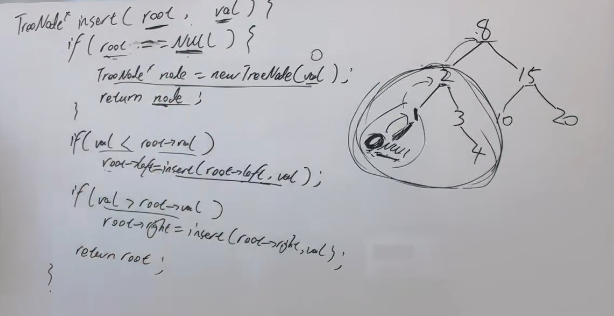 TreeNode* insert( root, val ) {
if( root == NULL ) {
TreeNode* node = new TreeNode(val);
return node ;
}
if( val < root->val )
root->left=insert(root->left, val) ;
if( val > root->val )
root->right = insert(root->right, val) ;
return root ;
}
0
8
2 15
1 3 10 20
NULL 4